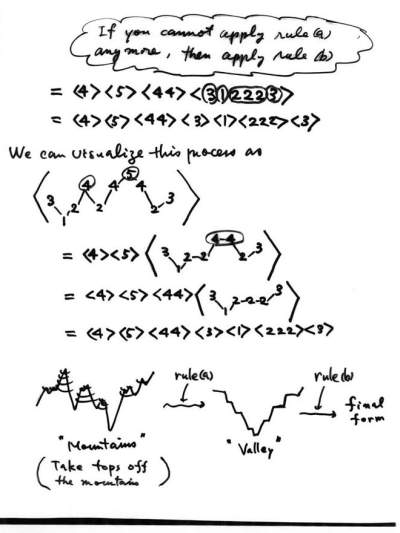 If you cannot apply rule (a)
any more, then apply rule (b)
= <4><5><44><312223>
= <4><5><44><3><1><222><3>
We can visualize this process as
< 3 1 2 4 2 4 5 4 2 3 >
= <4><5>< 3 1 2-2 4-4 2 3 >
= <4><5><44>< 3 1 2-2-2 3 >
= <4><5><44><3><1><222><3>
rule(a) rule(b)
final
form
"Mountains" "Valley"
( Take tops off
the mountains )